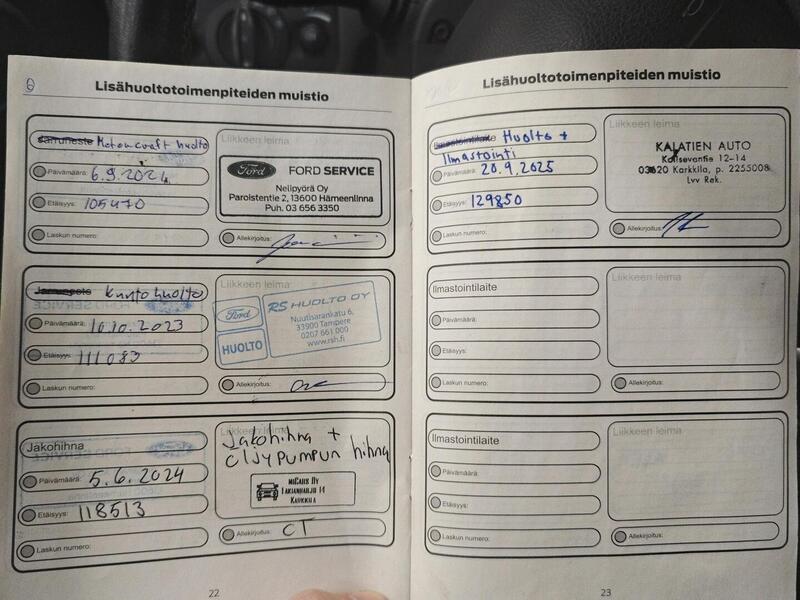 Lisähuoltotoimenpiteiden muistio
Jarruneste Motorcraft huolto
Päivämäärä: 6.9.2021
Etäisyys: 105470
Laskun numero:
Liikkeen leima
Ford FORD SERVICE
Nelipyörä Oy
Paroistentie 2, 13600 Hämeenlinna
Puh. 03 656 3350
Allekirjoitus:
Kuntohuolto
Päivämäärä: 10.10.2023
Etäisyys: 111083
Laskun numero:
Liikkeen leima
Ford RS HUOLTO OY
Nuutisarankatu 6,
33900 Tampere
0207 661 000
www.rsh.fi
HUOLTO
Allekirjoitus:
Jakohihna
Päivämäärä: 5.6.2024
Etäisyys: 118513
Laskun numero:
Liikkeen leima
Jakohihna +
öljypumpun hihna
Karkkila
Allekirjoitus: CT
22
Lisähuoltotoimenpiteiden muistio
Ilmastointilaite Huolto +
Ilmastointi
Päivämäärä: 20.9.2025
Etäisyys: 129850
Laskun numero:
Liikkeen leima
KALATIEN AUTO
12-14
03620 Karkkila, p. 2255008
Lvv Rek.
Allekirjoitus:
Ilmastointilaite
Päivämäärä:
Etäisyys:
Laskun numero:
Liikkeen leima
Allekirjoitus:
Ilmastointilaite
Päivämäärä:
Etäisyys:
Laskun numero:
Liikkeen leima
Allekirjoitus:
23